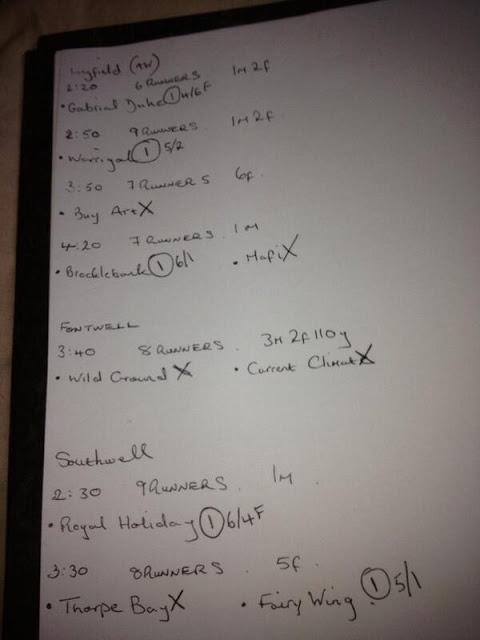 Lingfield (AW)
2:20 6 RUNNERS 1M 2f
• Gabrial Duke ① 4/6F
2:50 9 RUNNERS. 1M 2f
• Warrigal ① 5/2
3:50 7 RUNNERS 6f
• Buy Art X
4:20 7 RUNNERS. 1M
• Brocklebank ① 6/1 • Mafi X
FONTWELL
3:40 8 RUNNERS. 3M 2f 110y
• Wild Ground X • Current Climate X
Southwell
2:30 9 RUNNERS. 1M
• Royal Holiday ① 6/4F
3:30 8 RUNNERS. 5f.
• Thorpe Bay X • Fairy Wing. ① 5/1